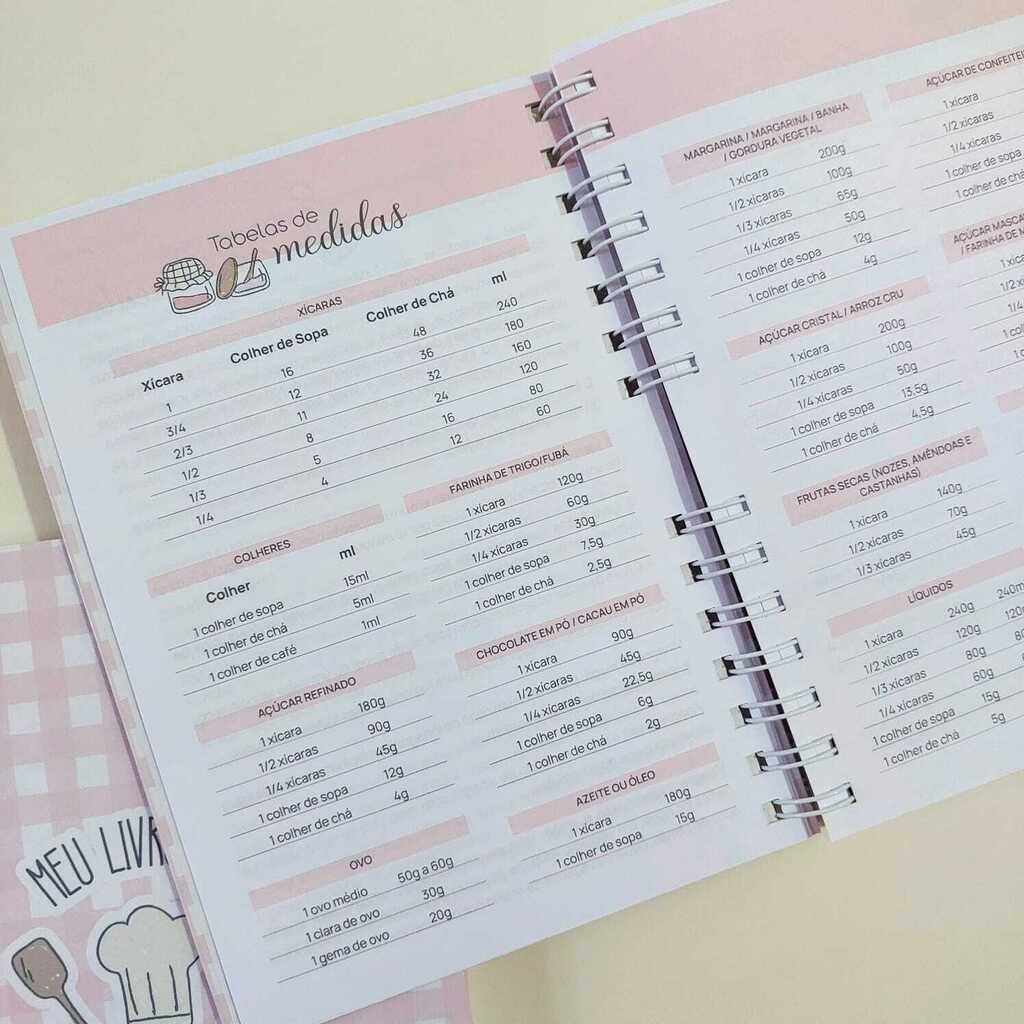 Tabelas de
medidas
XÍCARAS
Xícara Colher de Sopa Colher de Chá ml
1 16 48 240
3/4 12 36 180
2/3 11 32 160
1/2 8 24 120
1/3 5 16 80
1/4 4 12 60
COLHERES
Colher ml
1 colher de sopa 15ml
1 colher de chá 5ml
1 colher de café 1ml
AÇÚCAR REFINADO
1 xícara 180g
1/2 xícaras 90g
1/4 xícaras 45g
1 colher de sopa 12g
1 colher de chá 4g
OVO
1 ovo médio 50g a 60g
1 clara de ovo 30g
1 gema de ovo 20g
FARINHA DE TRIGO/FUBÁ
1 xícara 120g
1/2 xícaras 60g
1/4 xícaras 30g
1 colher de sopa 7,5g
1 colher de chá 2,5g
CHOCOLATE EM PÓ / CACAU EM PÓ
1 xícara 90g
1/2 xícaras 45g
1/4 xícaras 22,5g
1 colher de sopa 6g
1 colher de chá 2g
AZEITE OU ÓLEO
1 xícara 180g
1 colher de sopa 15g
MARGARINA / MARGARINA / BANHA
/ GORDURA VEGETAL
1 xícara 200g
1/2 xícaras 100g
1/3 xícaras 65g
1/4 xícaras 50g
1 colher de sopa 12g
1 colher de chá 4g
AÇÚCAR CRISTAL / ARROZ CRU
1 xícara 200g
1/2 xícaras 100g
1/4 xícaras 50g
1 colher de sopa 13,5g
1 colher de chá 4,5g
FRUTAS SECAS (NOZES, AMÊNDOAS E
CASTANHAS)
1 xícara 140g
1/2 xícaras 70g
1/3 xícaras 45g
LÍQUIDOS
1 xícara 240g 240m
1/2 xícaras 120g 120
1/3 xícaras 80g 80
1/4 xícaras 60g 6
1 colher de sopa 15g
1 colher de chá 5g
AÇÚCAR DE CONFEITEI
1 xícara
1/2 xícaras
1/4 xícaras
1 colher de sopa
1 colher de chá
AÇÚCAR MASCA
/ FARINHA DE M
1 xíca
1/2 x
1/4
1 col
1 c
MEU LIVR